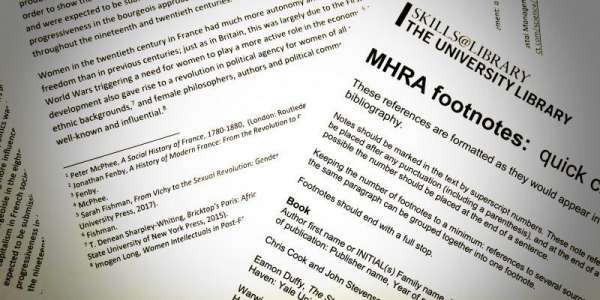 order to show the
and were expected to be
progressiveness in the bourgeois
throughout the nineteenth and twentieth centuries.
Women in the twentieth century in France had much more autonomy and
freedom than in previous centuries; just as in Britain, this was largely due to the
World Wars triggering a need for women to play a more active role in the economy
development also gave rise to a revolution in political agency for women of all
ethnic backgrounds,⁷ and female philosophers, authors and political
well-known and influential.⁸
¹ Peter McPhee, A Social History of France, 1780-1880, (London: Routledge
² Jonathan Fenby, The History of Modern France: From the Revolution to
³ Fenby.
⁴ McPhee.
⁵ Sarah Fishman, From Vichy to the Sexual Revolution: Gender
University Press, 2017).
⁶ Fishman.
⁷ T. Denean Sharpley-Whiting, Bricktop's Paris:
State University of New York Press, 2015).
⁸ Imogen Long, Women Intellectuals in Post-
SKILLS@LIBRARY
THE UNIVERSITY LIBRARY
MHRA footnotes: quick
These references are formatted as they would appear in
bibliography.
Notes should be marked in the text by superscript numbers. These note
be placed after any punctuation (including a parenthesis), and at the
possible the number should be placed at the end of a sentence.
Keeping the number of footnotes to a minimum: references to several
the same paragraph can be grouped together into one footnote.
Footnotes should end with a full stop.
Book
Author first name or INITIAL(s) Family name
of publication: Publisher name, Year of
Chris Cook and John Stevenson
Eamon Duffy, The
Haven: Yale